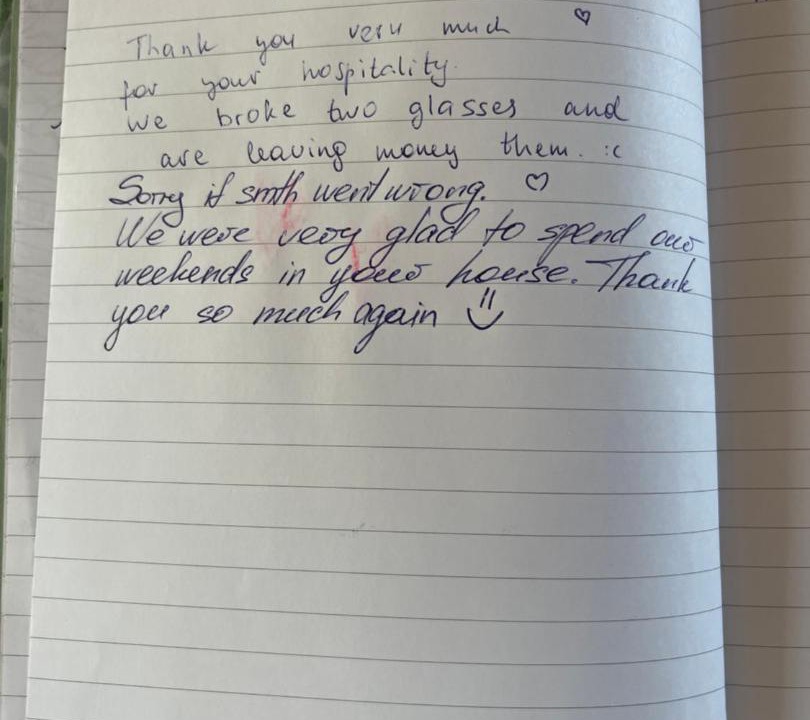 Thank you very much ♡
for your hospitality.
We broke two glasses and
are leaving money them. :c
Sorry if smth went wrong. ♡
We were very glad to spend our
weekends in your house. Thank
you so much again